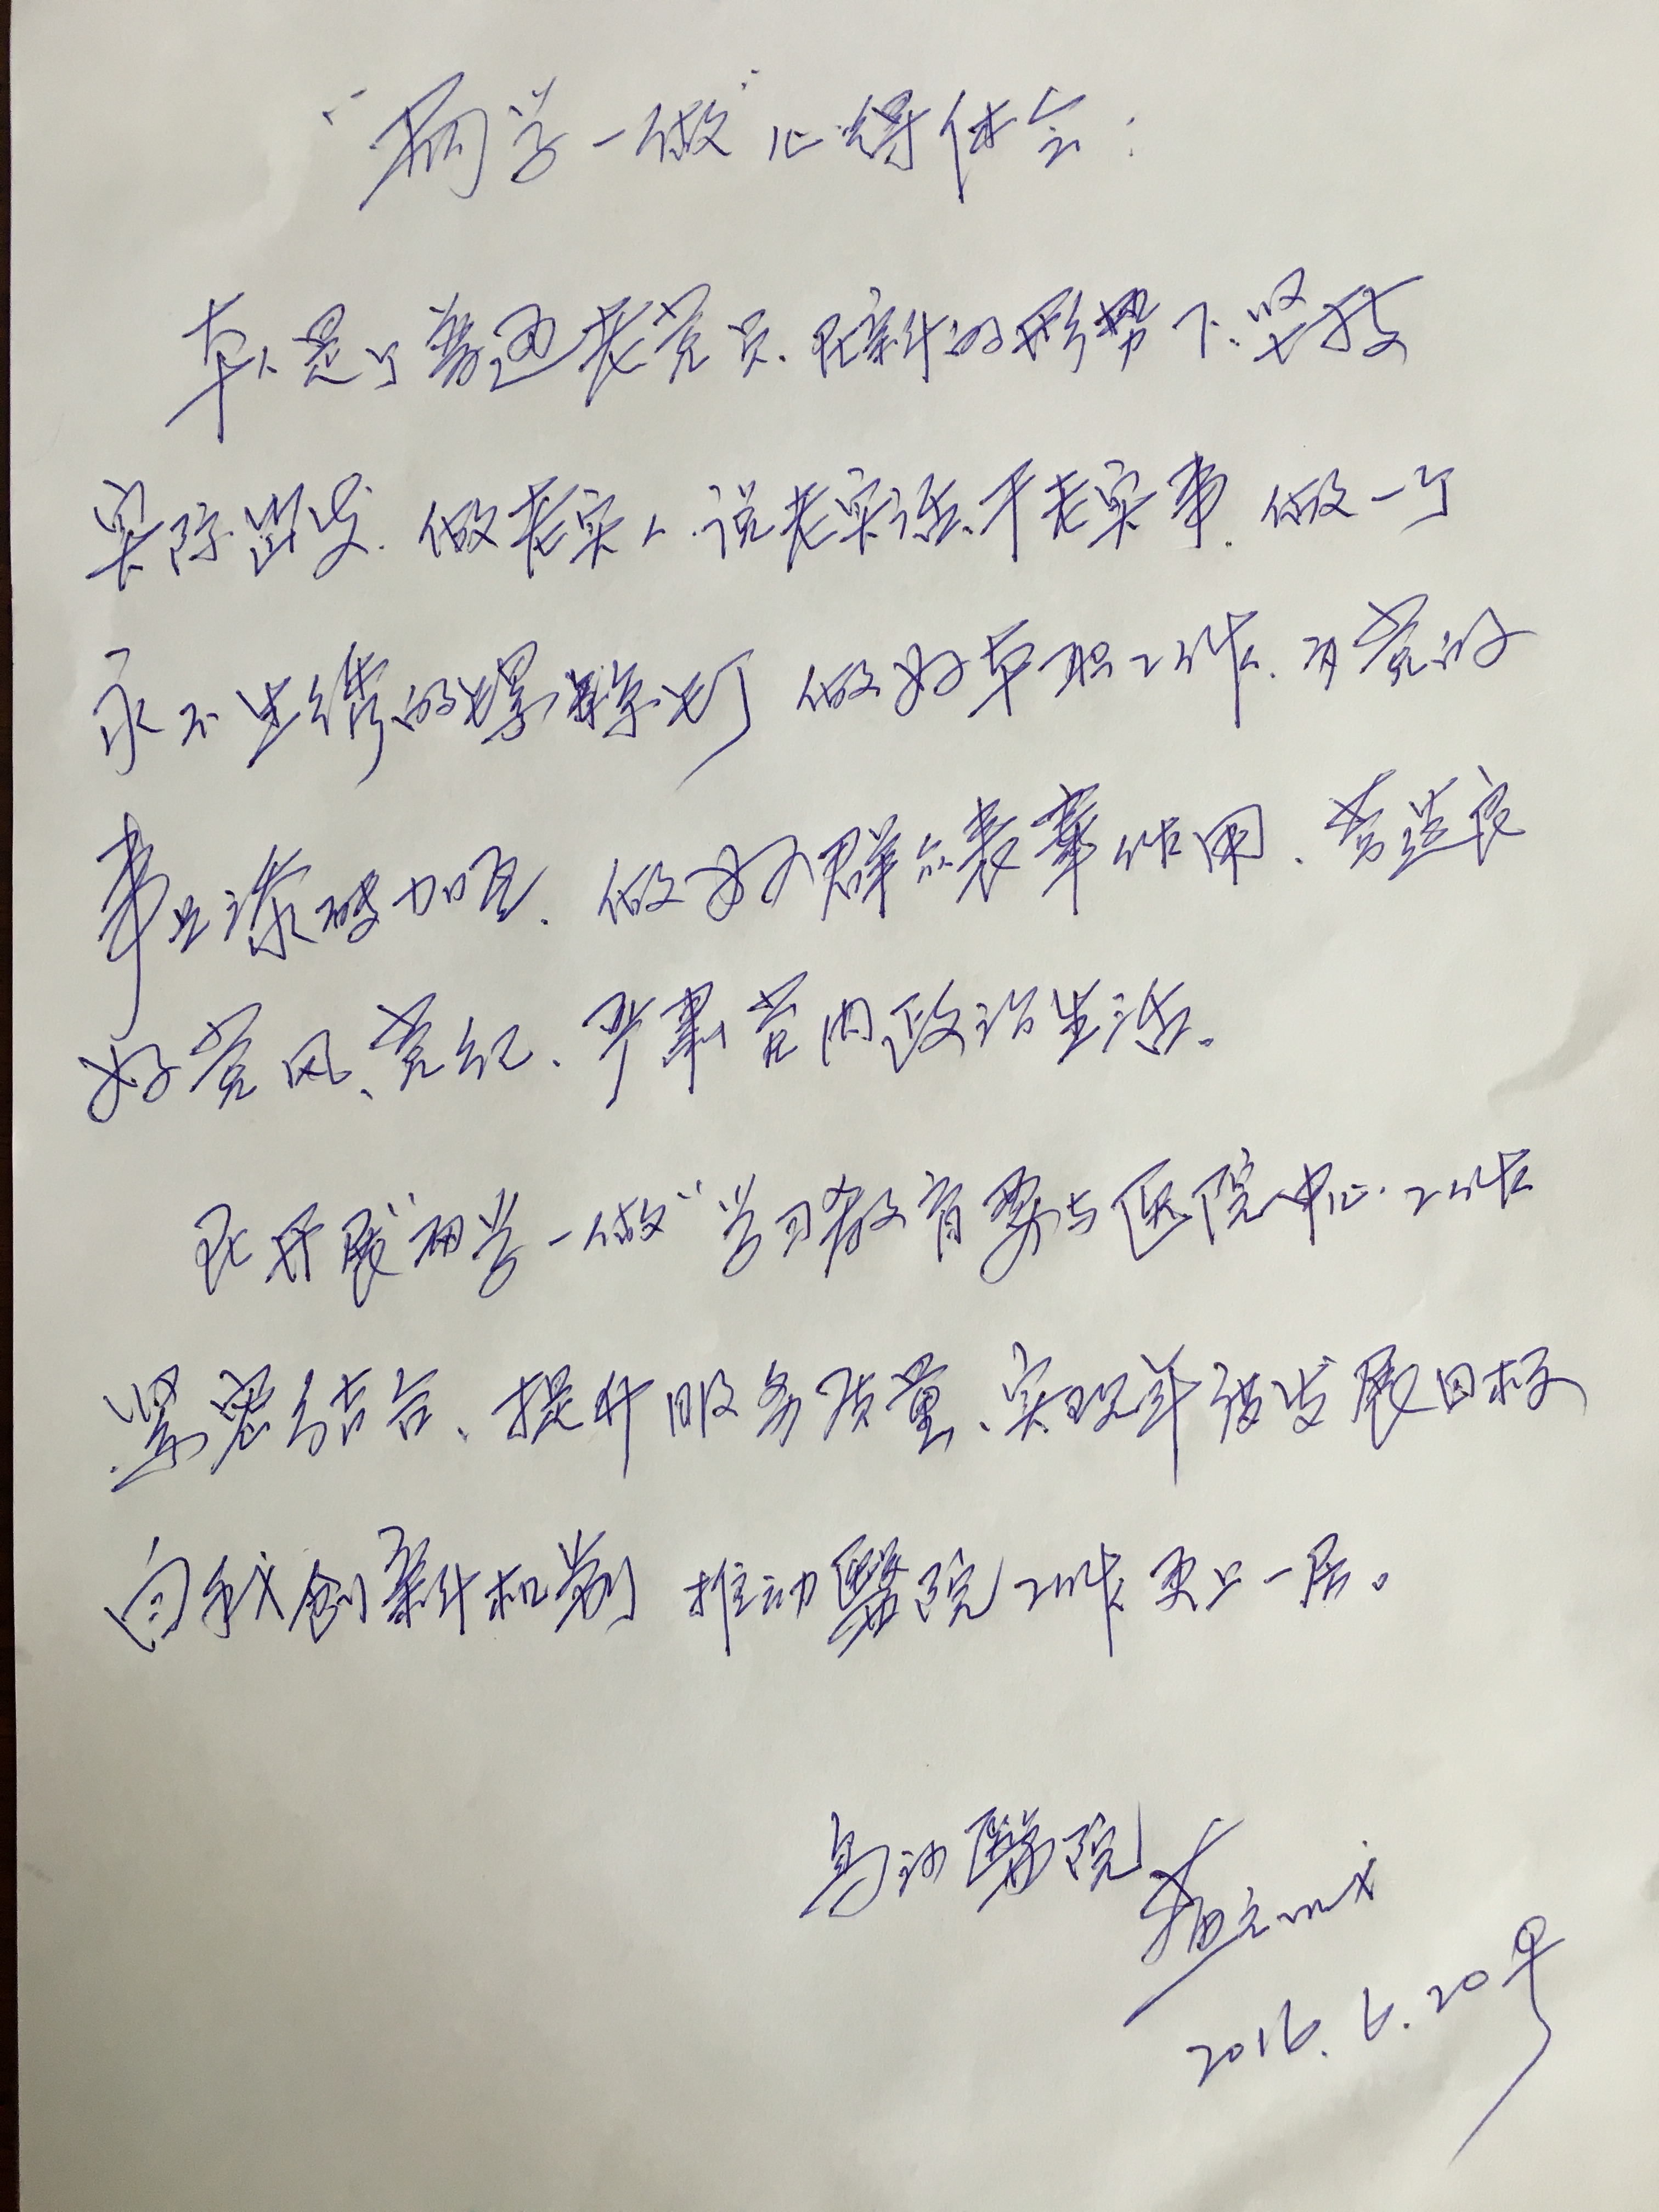 "两学一做"心得体会:
本人是个普通老党员.在新的形势下.坚持
实际出发.做老实人.说老实话.干老实事.做一个
永不生锈的螺丝钉 做好本职工作.为党的
事业添砖加瓦.做好群众表率作用.营造良
好党风、党纪、严肃党内政治生活。
在开展"两学一做"学习教育要与医院中心工作
紧密结合、提升服务质量、实现年度发展目标
自我创新机制 推动醫院工作更上一层。
乌沙醫院
2016.6.20早